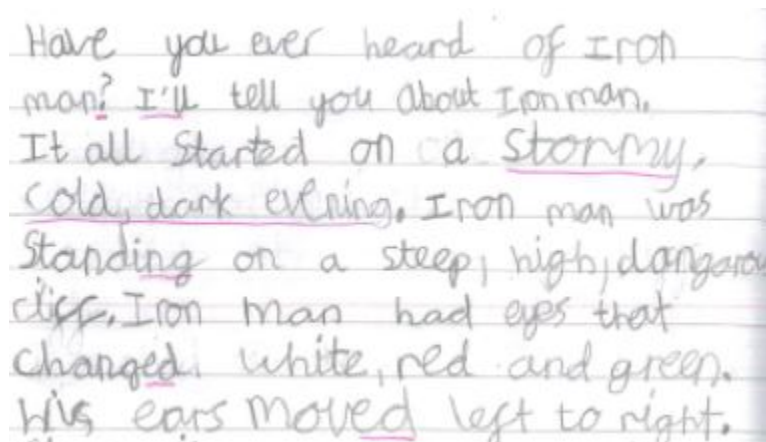 Have you ever heard of Iron
man? I'll tell you about Ironman.
It all started on a stormy,
cold, dark evening. Iron man was
Standing on a steep, high, dangarou
cliff. Iron man had eyes that
changed white, red and green.
His ears moved left to right.